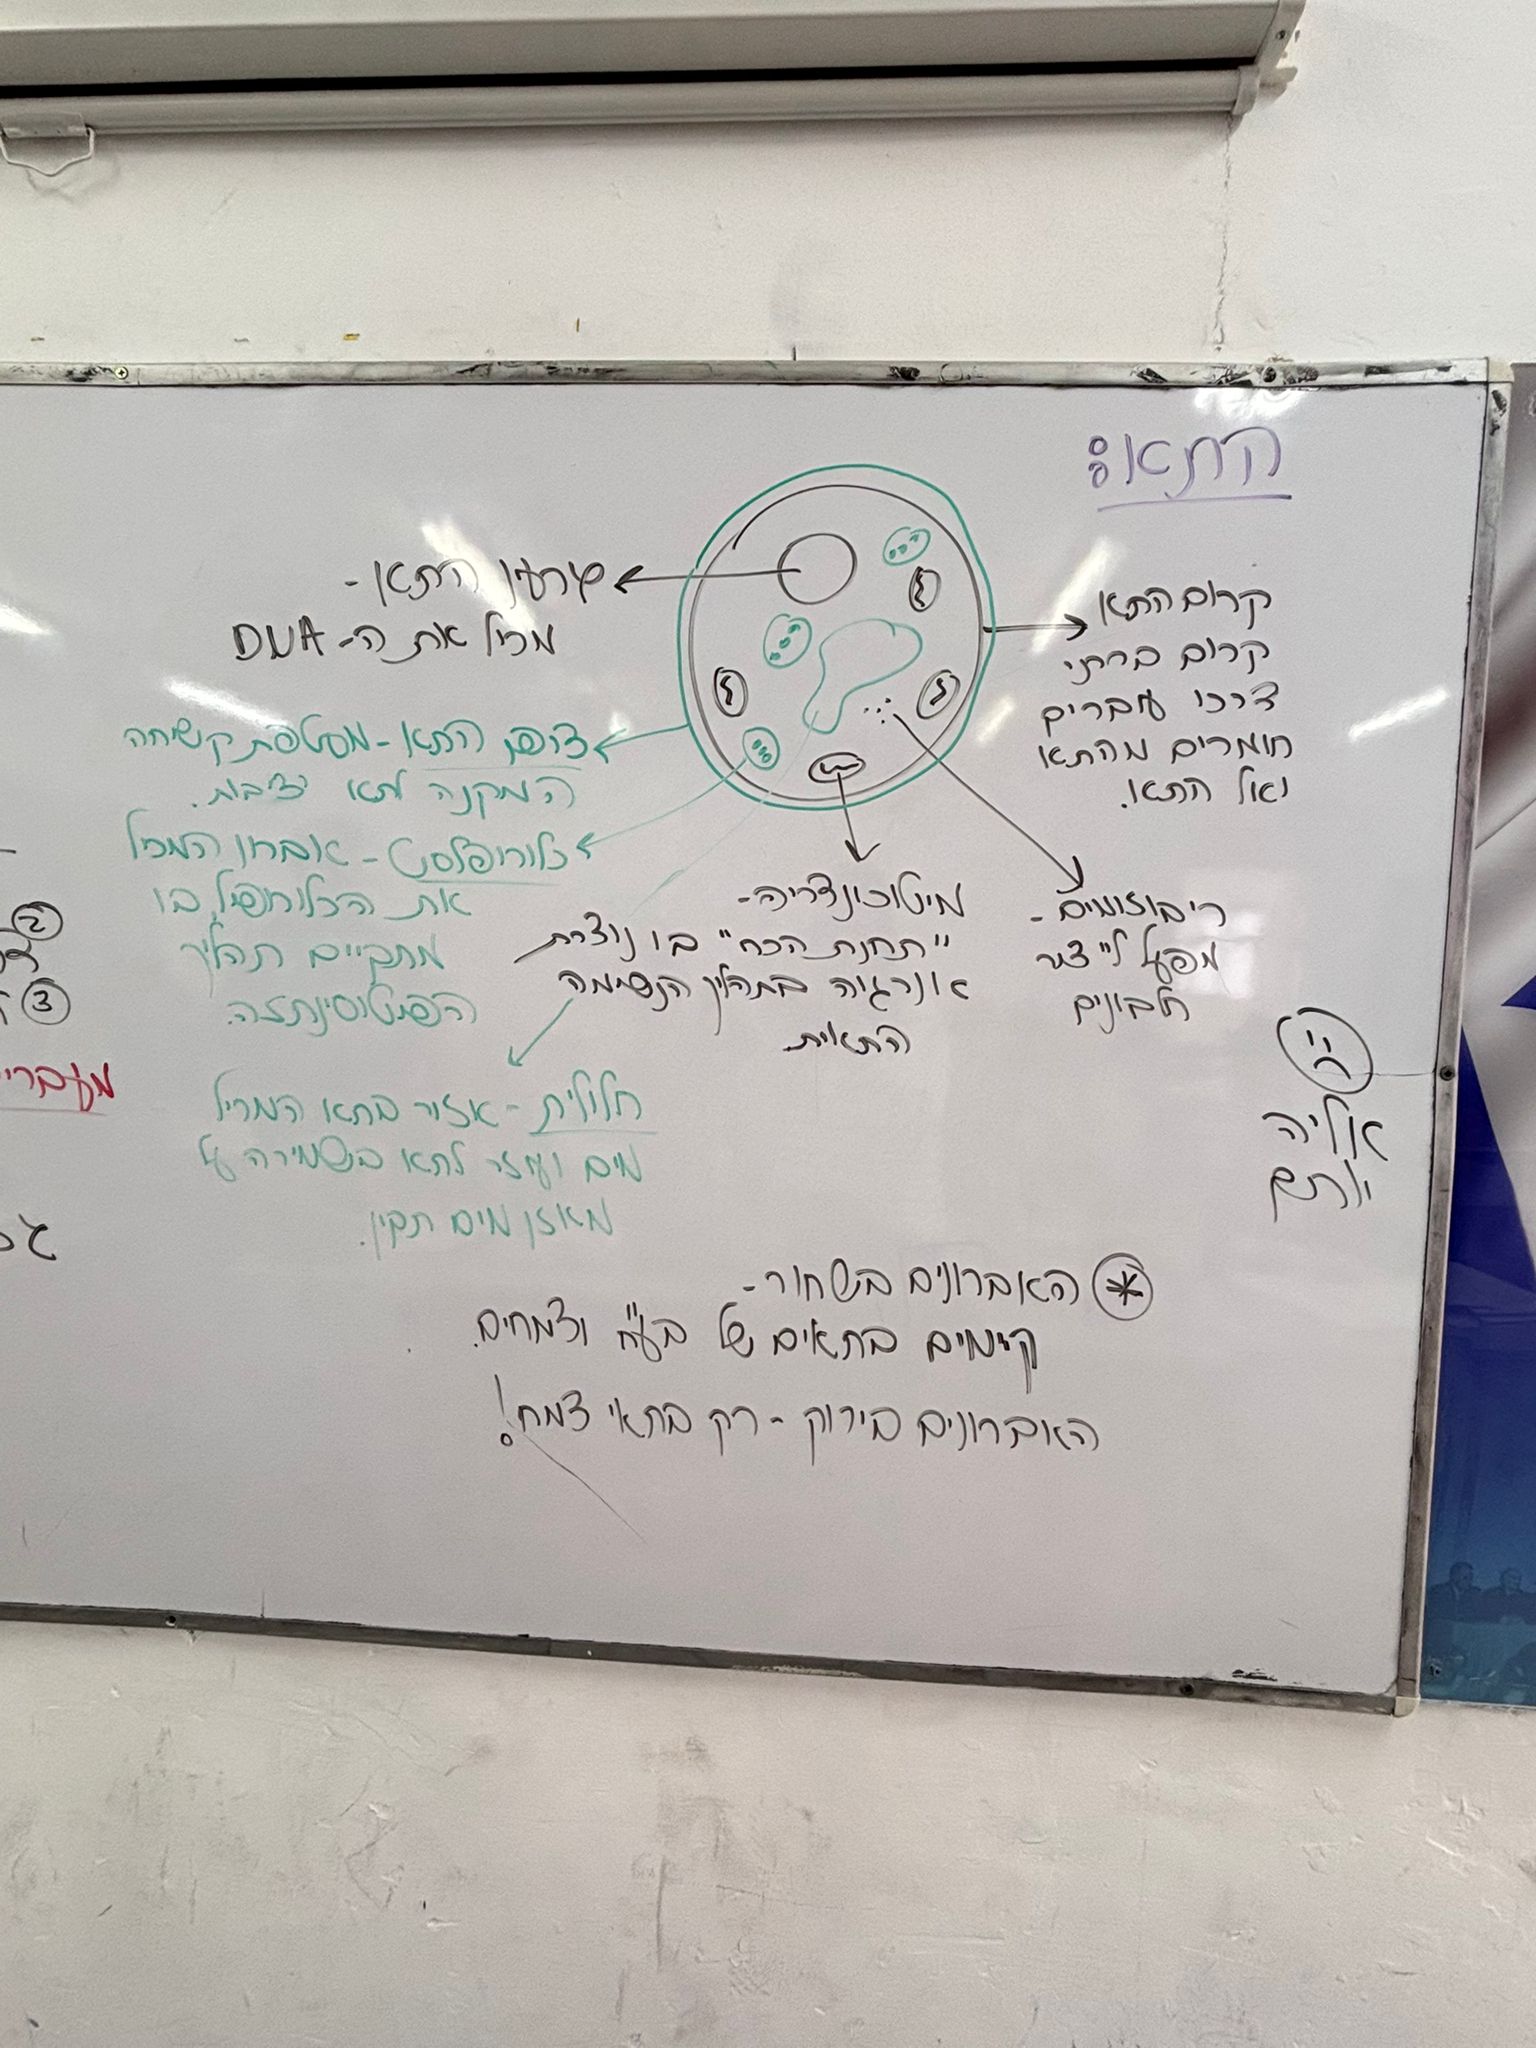 התא:
קרום התא
קרום בררתי
דרכו עוברים
חומרים מהתא
ואל התא.
גרעין התא -
מכיל את ה- DNA
דופן התא - מעטפת קשיחה
המקנה לתא יציבות.
כלורופלסט - אברון המכיל
את הכלורופיל, בו
מתקיים תהליך
הפוטוסינתזה.
ריבוזומים -
מפעל לייצור
חלבונים
מיטוכונדריה -
"תחנת הכח" בו נוצרת
אנרגיה בתהליך הנשימה
התאית.
חלולית - אזור בתא המכיל
מים ועוזר לתא בשמירה על
מאזן מים תקין.
* האברונים בשחור -
קיימים בתאים של בע"ח וצמחים.
האברונים בירוק - רק בתאי צמח!
אליה
2
3